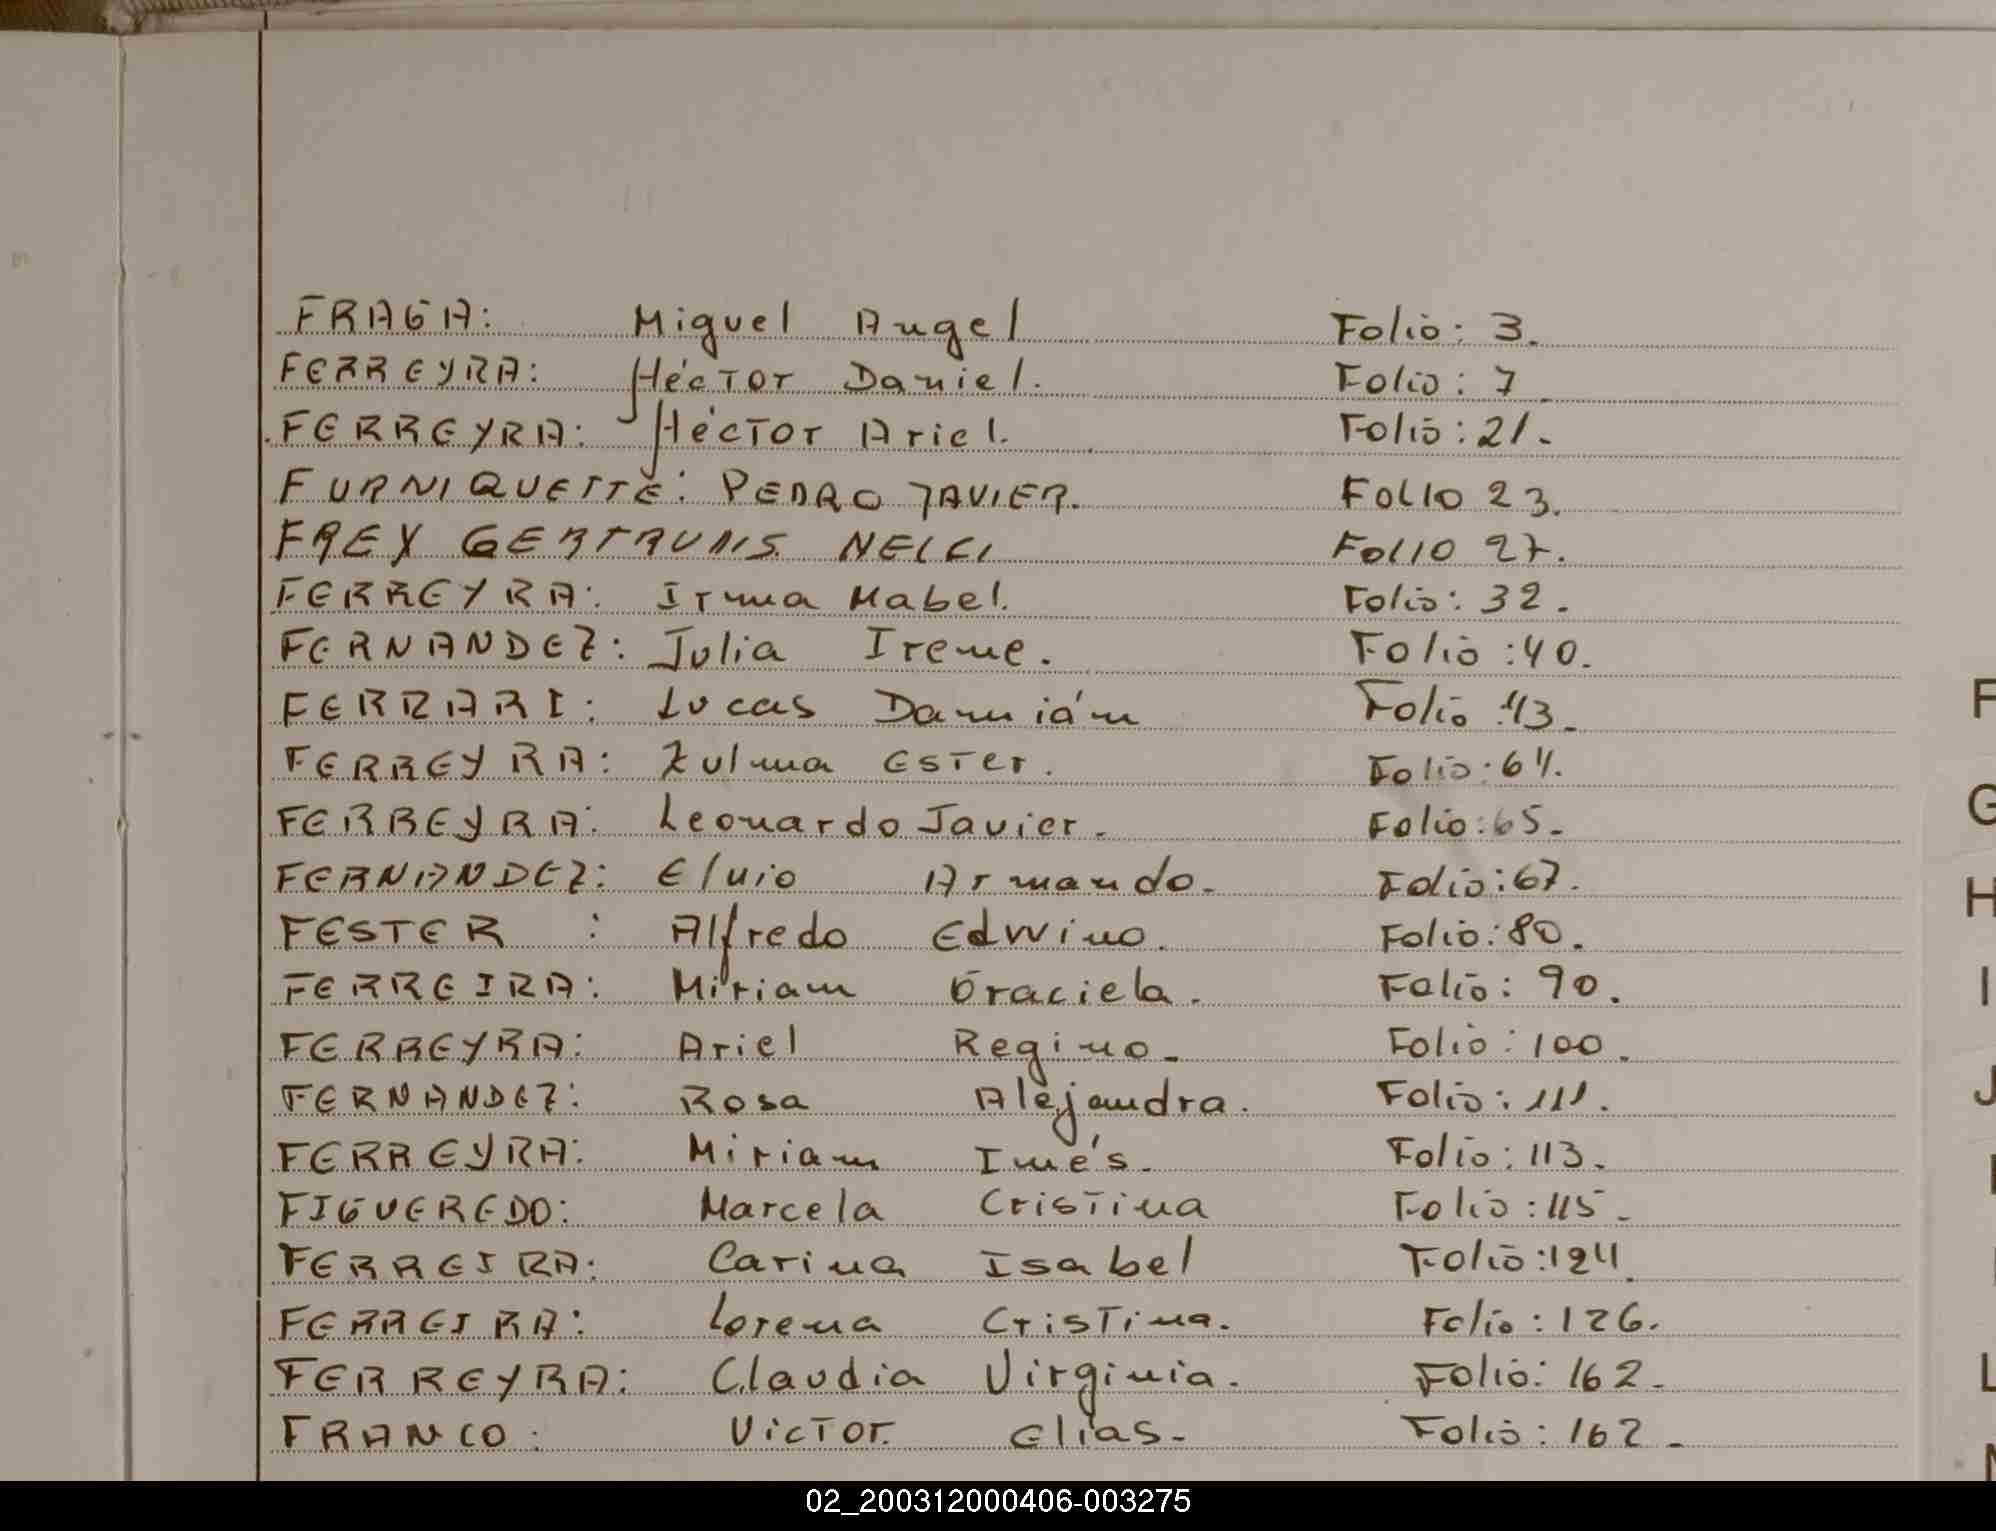 FRAGA: Miguel Angel Folio: 3.
FERREYRA: Héctor Daniel. Folio: 7
FERREYRA: Héctor Ariel. Folio: 21.
FURNIQUETTE: PEDRO JAVIER. FOLIO 23.
FREY GERTRUDIS NELCI FOLIO 27.
FERREYRA: Irma Mabel. Folio: 32.
FERNANDEZ: Julia Irene. Folio: 40.
FERRARI: Lucas Damián Folio 43.
FERREYRA: Zulma Ester. Folio: 64.
FERREYRA: Leonardo Javier. Folio: 65.
FERNANDEZ: Elvio Armando. Folio: 67.
FESTER : Alfredo Edwino. Folio: 80.
FERREIRA: Miriam Graciela. Folio: 90.
FERREYRA: Ariel Regino. Folio: 100.
FERNANDEZ: Rosa Alejandra. Folio: 111.
FERREYRA: Miriam Inés. Folio: 113.
FIGUEREDO: Marcela Cristina Folio: 115.
FERREIRA: Carina Isabel Folio: 124.
FERREIRA: Lorena Cristina. Folio: 126.
FERREYRA: Claudia Virginia. Folio: 162.
FRANCO: Victor Elias. Folio: 162.
F
G
H
I
J
L
02_200312000406-003275